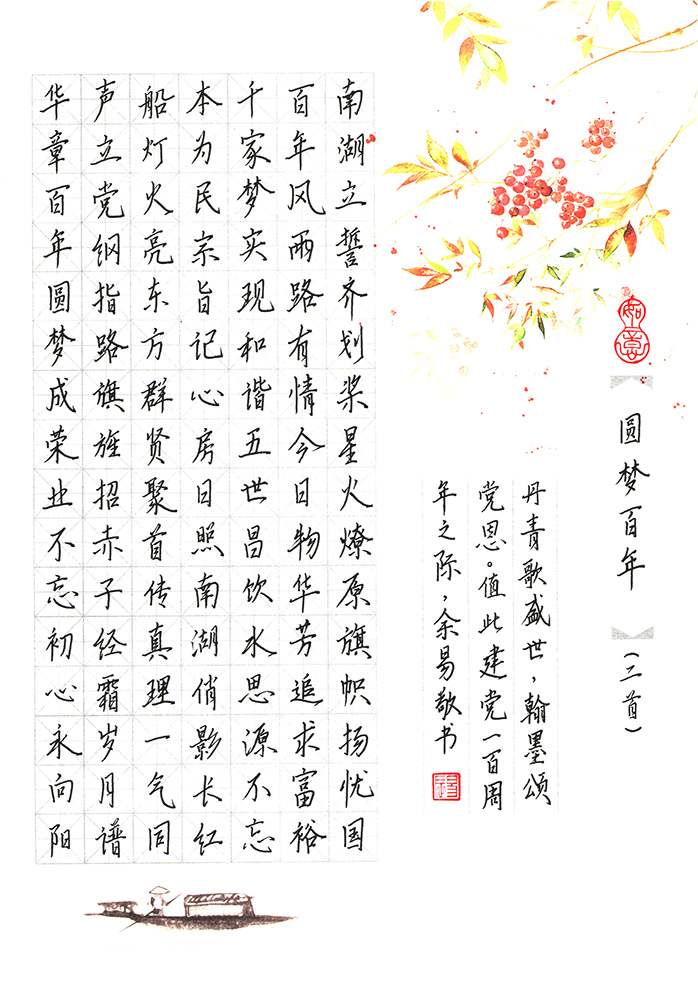 如意
圆梦百年（三首）
丹青歌盛世，翰墨颂
党恩。值此建党一百周
年之际，余易敬书
南湖立誓齐划桨星火燎原旗帜扬忧国
百年风雨路有情今日物华芳追求富裕
千家梦实现和谐五世昌饮水思源不忘
本为民宗旨记心房日照南湖俏影长红
船灯火亮东方群贤聚首传真理一气同
声立党纲指路旗旌招赤子经霜岁月谱
华章百年圆梦成荣业不忘初心永向阳